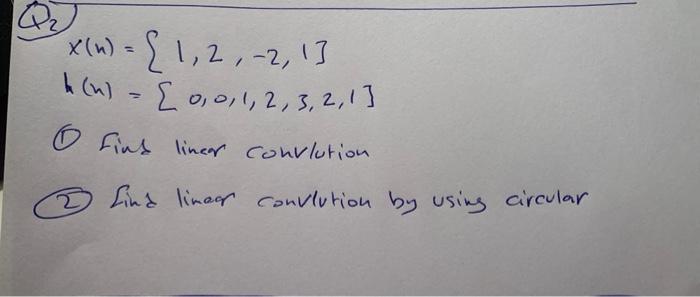 Q2
x(n) = { 1, 2, -2, 1 }
h(n) = { 0, 0, 1, 2, 3, 2, 1 }
① Find linear convlution
② find linear convlution by using circular